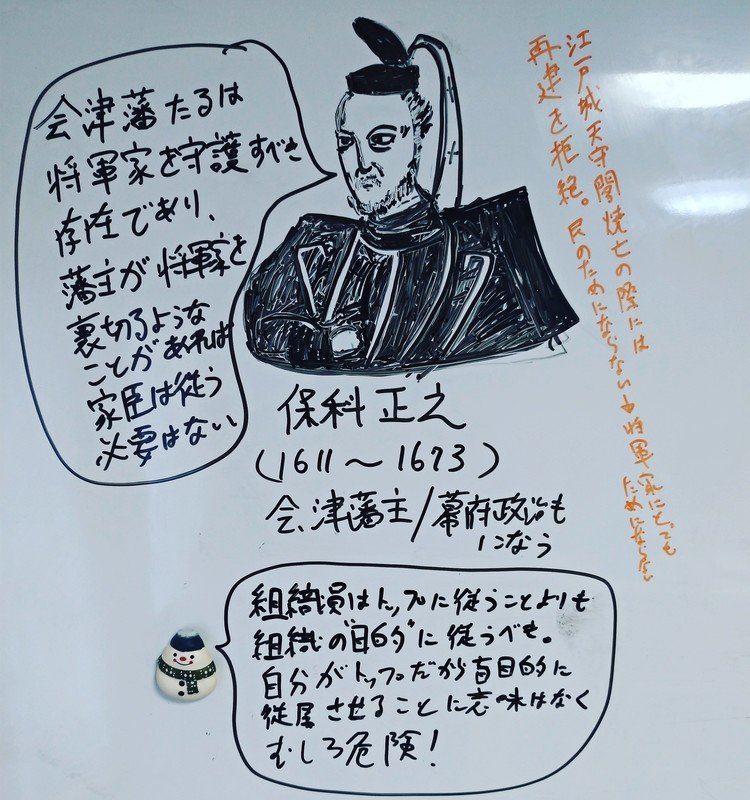 会津藩たるは
将軍家を守護すべき
存在であり、
藩主が将軍家を
裏切るような
ことがあれば
家臣は従う
必要はない
江戸城天守閣焼亡の際には
再建を拒絶。民のためにならない→将軍家にとっても
ためにならない
保科正之
(1611〜1673)
会津藩主/幕府政治も
になう
組織員はトップに従うことよりも
組織の"目的"に従うべき。
自分がトップだから盲目的に
従属させることに意味はなく
むしろ危険!